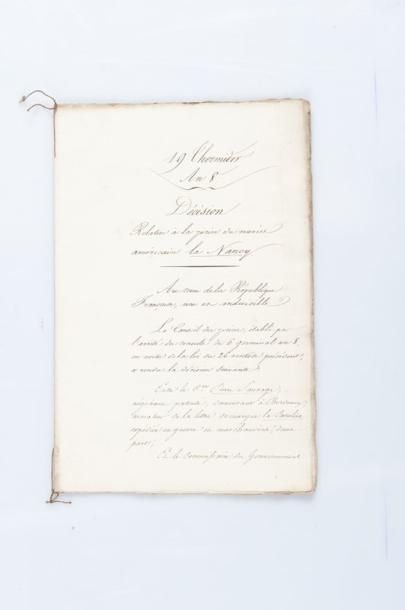 19 Thermidor
An 8
Décision
Relative à la prise du navire
américain la Nancy
Au nom de la République
Française, une et indivisible
Le Conseil des prises, établi par
l'arrêté des consuls du 6 germinal an 8,
en vertu de la loi du 26 ventôse précédent,
a rendu la décision suivante :
Entre le C.en
négociant patenté, demeurant à Bordeaux,
armateur de la lettre de marque la
expédiée en guerre et marchandise, d'une
part ;
Et le commissaire du Gouvernement